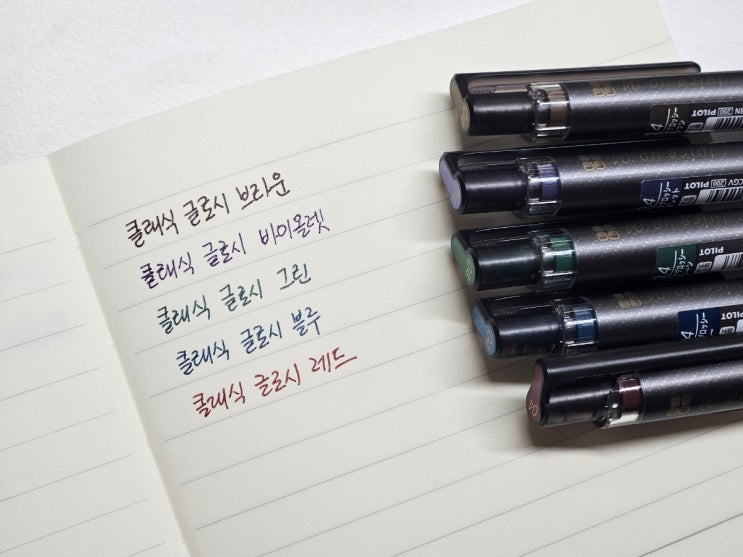 클래식 글로시 브라운
클래식 글로시 바이올렛
클래식 글로시 그린
클래식 글로시 블루
클래식 글로시 레드
200 PILOT
CGV 200 PILOT
PILOT